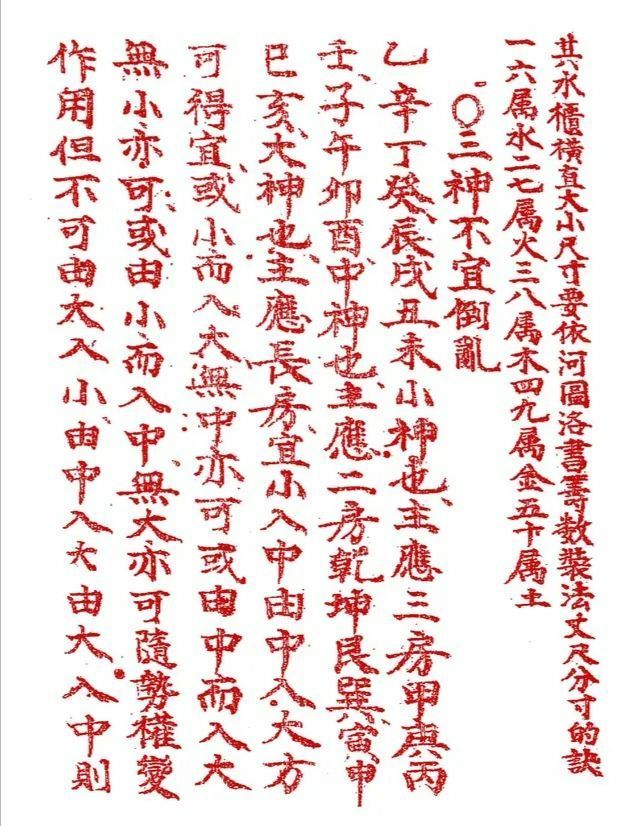 其水櫃橫直大小尺寸要依河圖洛書壽数裝法丈尺分寸的訣
一六属水二七属火三八属木四九属金五十属土
〇三神不宜倒亂
乙辛丁癸辰戌丑未小神也主應三房甲庚丙
壬子午卯酉中神也主應二房乾坤艮巽寅申
巳亥大神也主應長房宜小入中由中入大方
可得宜或小而入大無中亦可或由中而入大
無小亦可或由小而入中無大亦可隨勢權變
作用但不可由大入小由中入大由大入中則